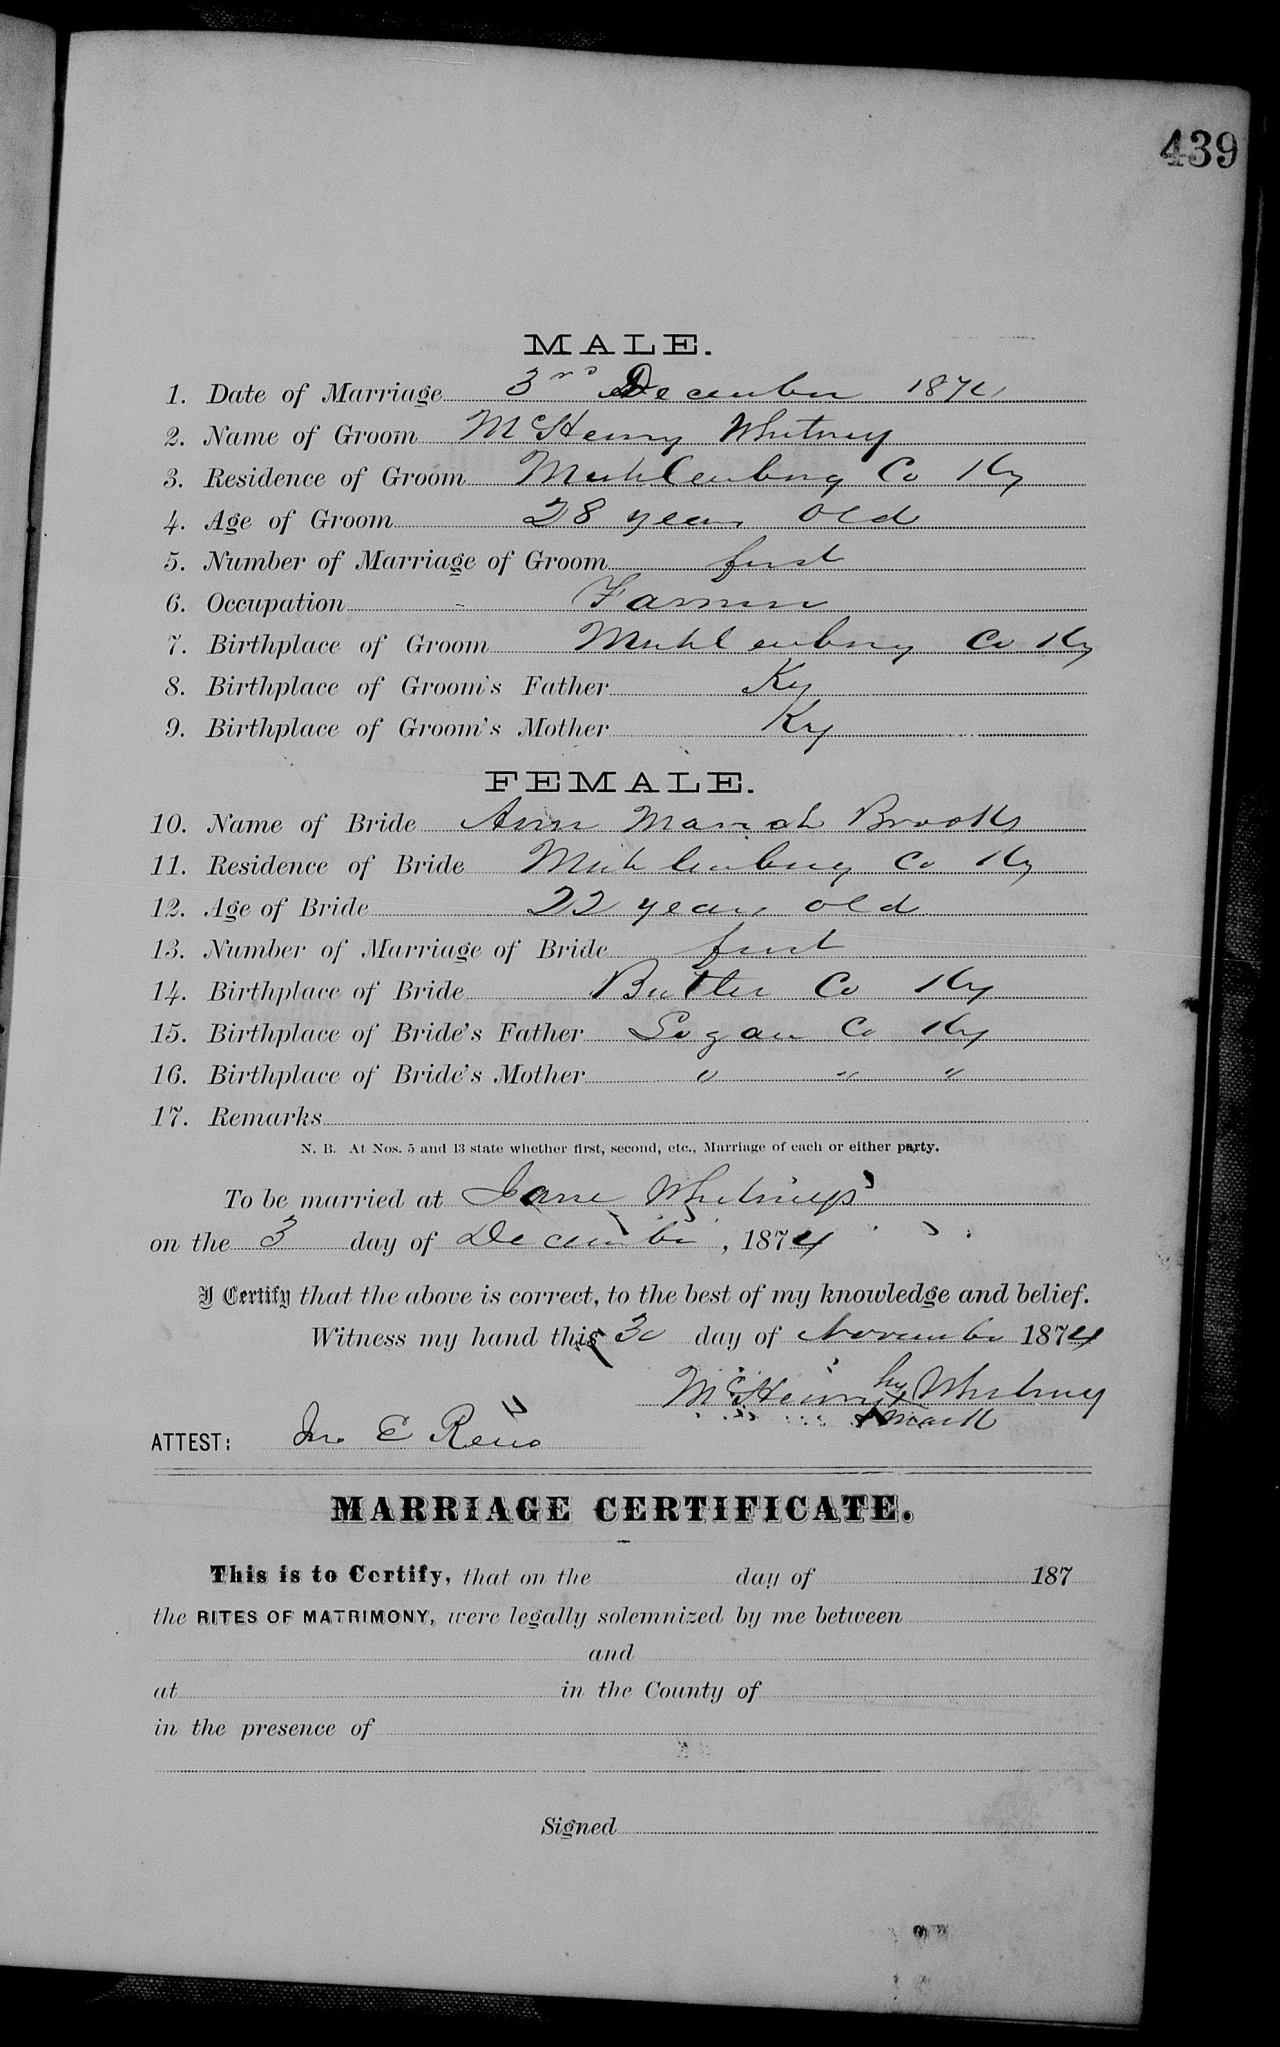 439
MALE.
1. Date of Marriage 3rd December 1874
2. Name of Groom McHenry Whitney
3. Residence of Groom Muhlenburg Co Ky
4. Age of Groom 28 years old
5. Number of Marriage of Groom first
6. Occupation Farmer
7. Birthplace of Groom Muhlenburg Co Ky
8. Birthplace of Groom's Father Ky
9. Birthplace of Groom's Mother Ky
FEMALE.
10. Name of Bride Ann Mariah Brooks
11. Residence of Bride Muhlenburg Co Ky
12. Age of Bride 22 years old
13. Number of Marriage of Bride first
14. Birthplace of Bride Butler Co Ky
15. Birthplace of Bride's Father Logan Co Ky
16. Birthplace of Bride's Mother " " "
17. Remarks
N. B. At Nos. 5 and 13 state whether first, second, etc., Marriage of each or either party.
To be married at Jane Whitneys
on the 3 day of December, 1874
I Certify that the above is correct, to the best of my knowledge and belief.
Witness my hand this 30 day of November 1874
McHenry his x mark Whitney
ATTEST: Jno E Reno
MARRIAGE CERTIFICATE.
This is to Certify, that on the day of 187
the RITES OF MATRIMONY, were legally solemnized by me between
and
at in the County of
in the presence of
Signed